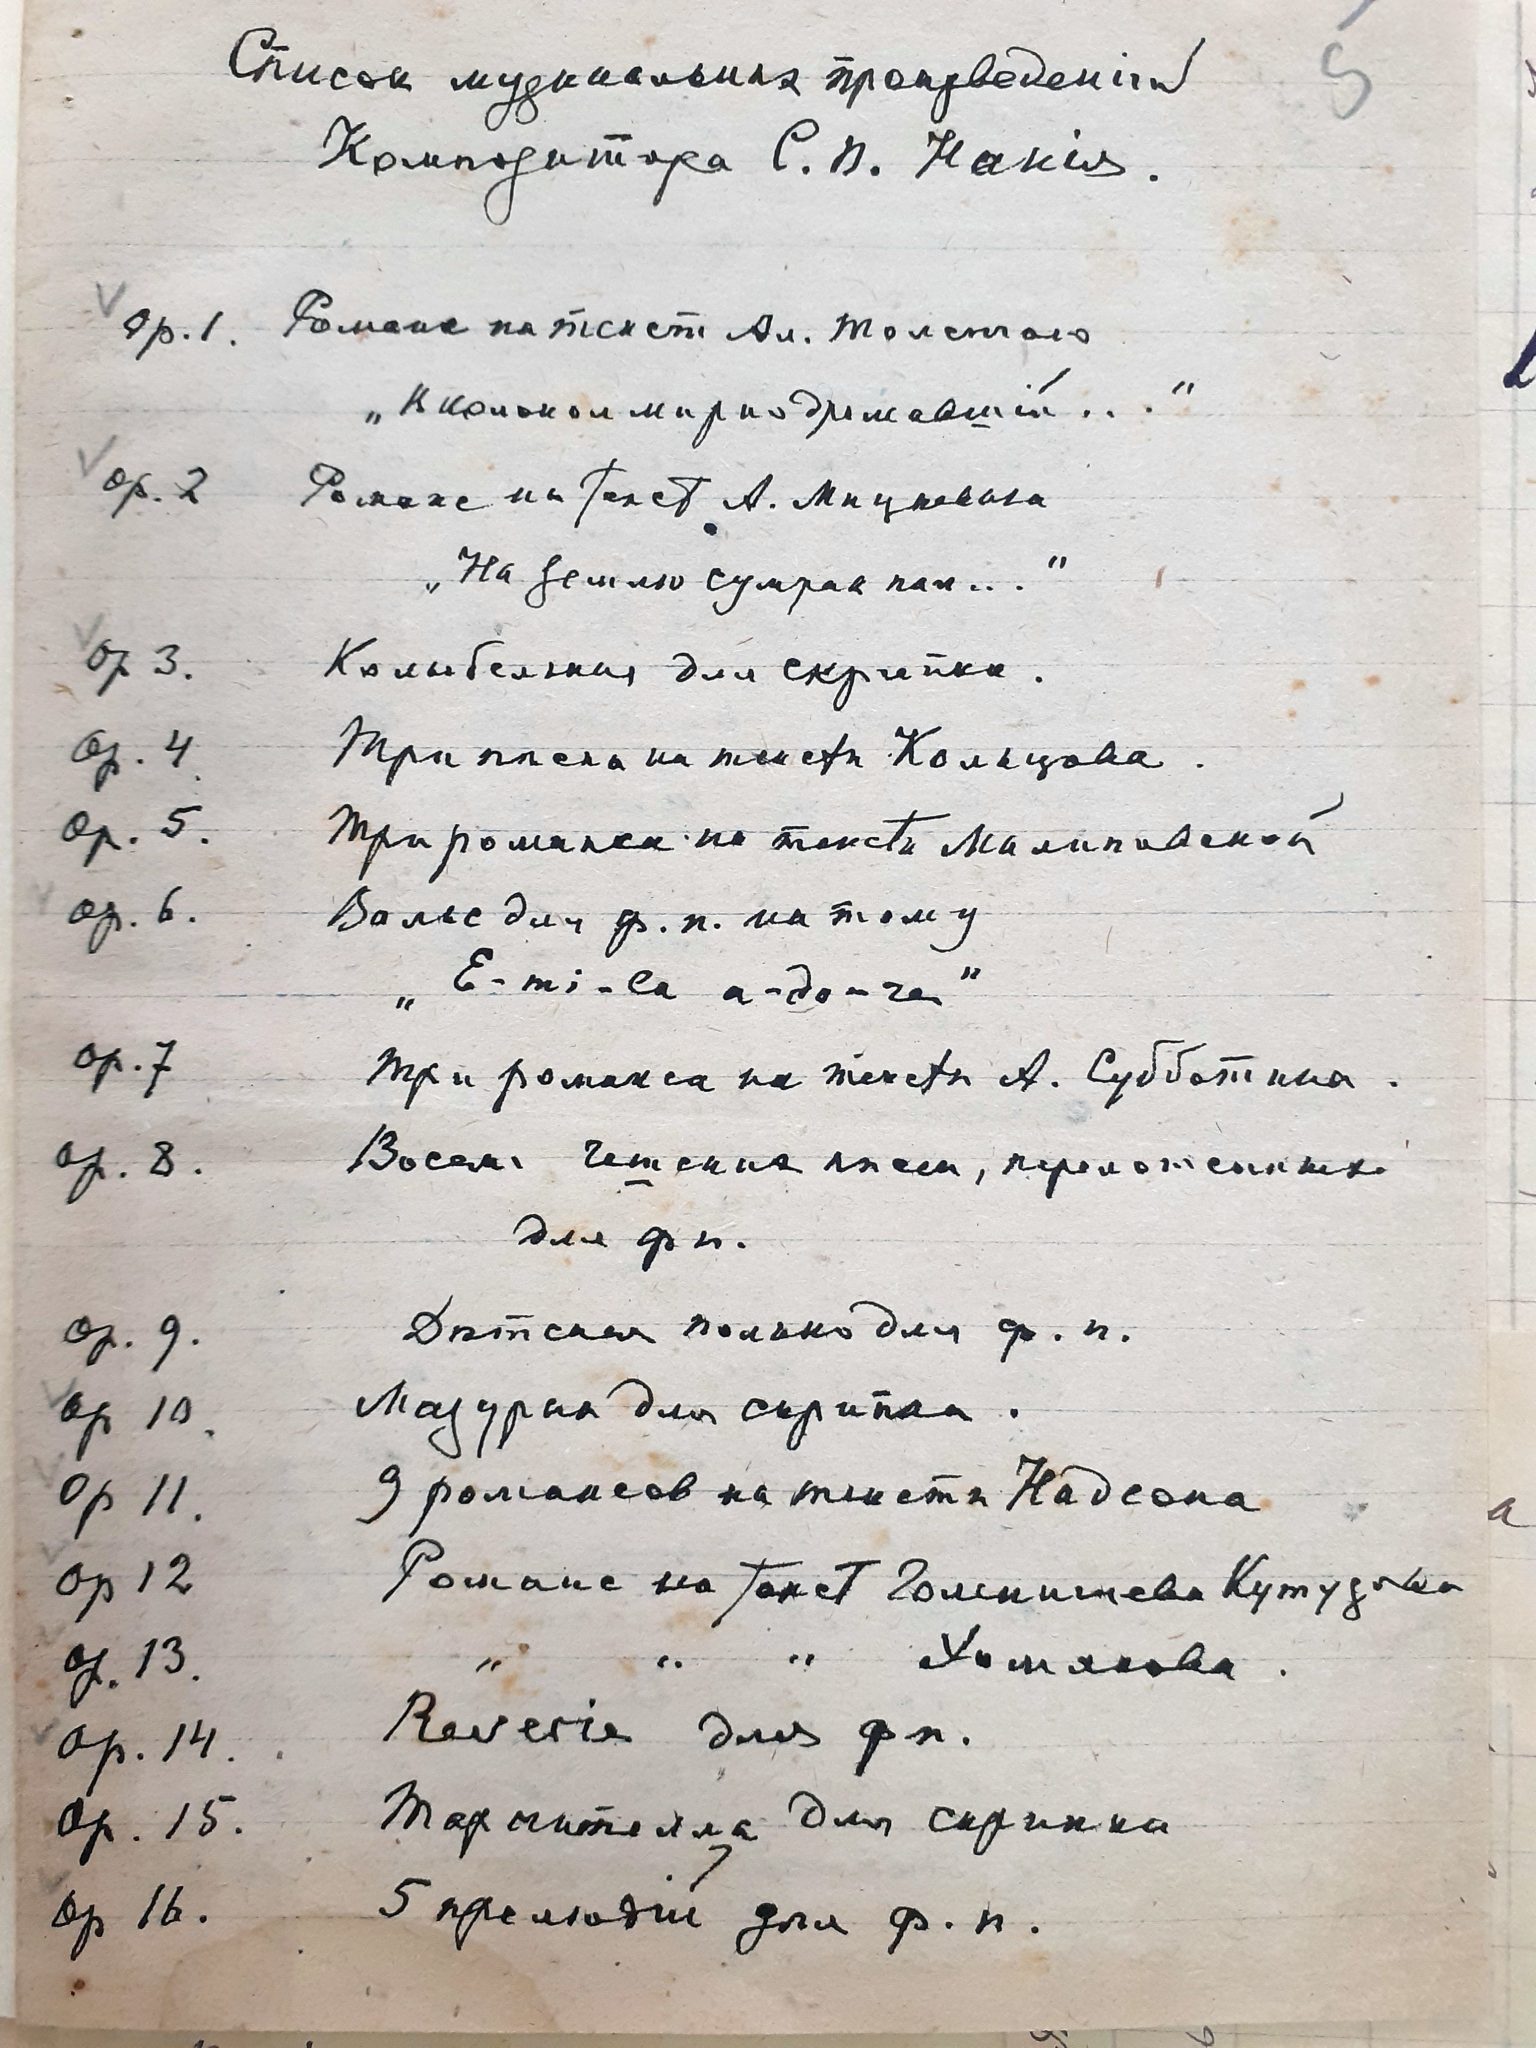 Список музыкальных произведенiй
Композитора С. П.
5
Op. 1. Романс на текст Ал. Толстого
„Колокол мирно дремавшiй . . . "
Op. 2 Романс на текст А. Мицкевича
„На землю сумрак пал . . . "
Op 3. Колыбельная для скрипки.
Op. 4. Три песни на тексты Кольцова.
Op. 5. Три романса на тексты Малиновской
Op. 6. Вальс для ф. п. на тему
„E-mi-la a-do-re"
Op. 7 Три романса на тексты А. Субботина.
Op. 8. Восемь чешских песен, переложенных
для фп.
Op. 9. Дѣтская полька для ф. п.
Op 10. Мазурка для скрипки.
Op 11. 9 романсов на тексты Надсона
Op 12 Романс на текст Голенищева Кутузова
Op. 13. " " " Хомякова.
Op. 14. Reverie для фп.
Op. 15. Тарантелла для скрипки
Op 16. 5 прелюдiй для ф. п.